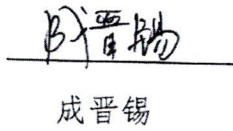 成晋锡
成晋锡